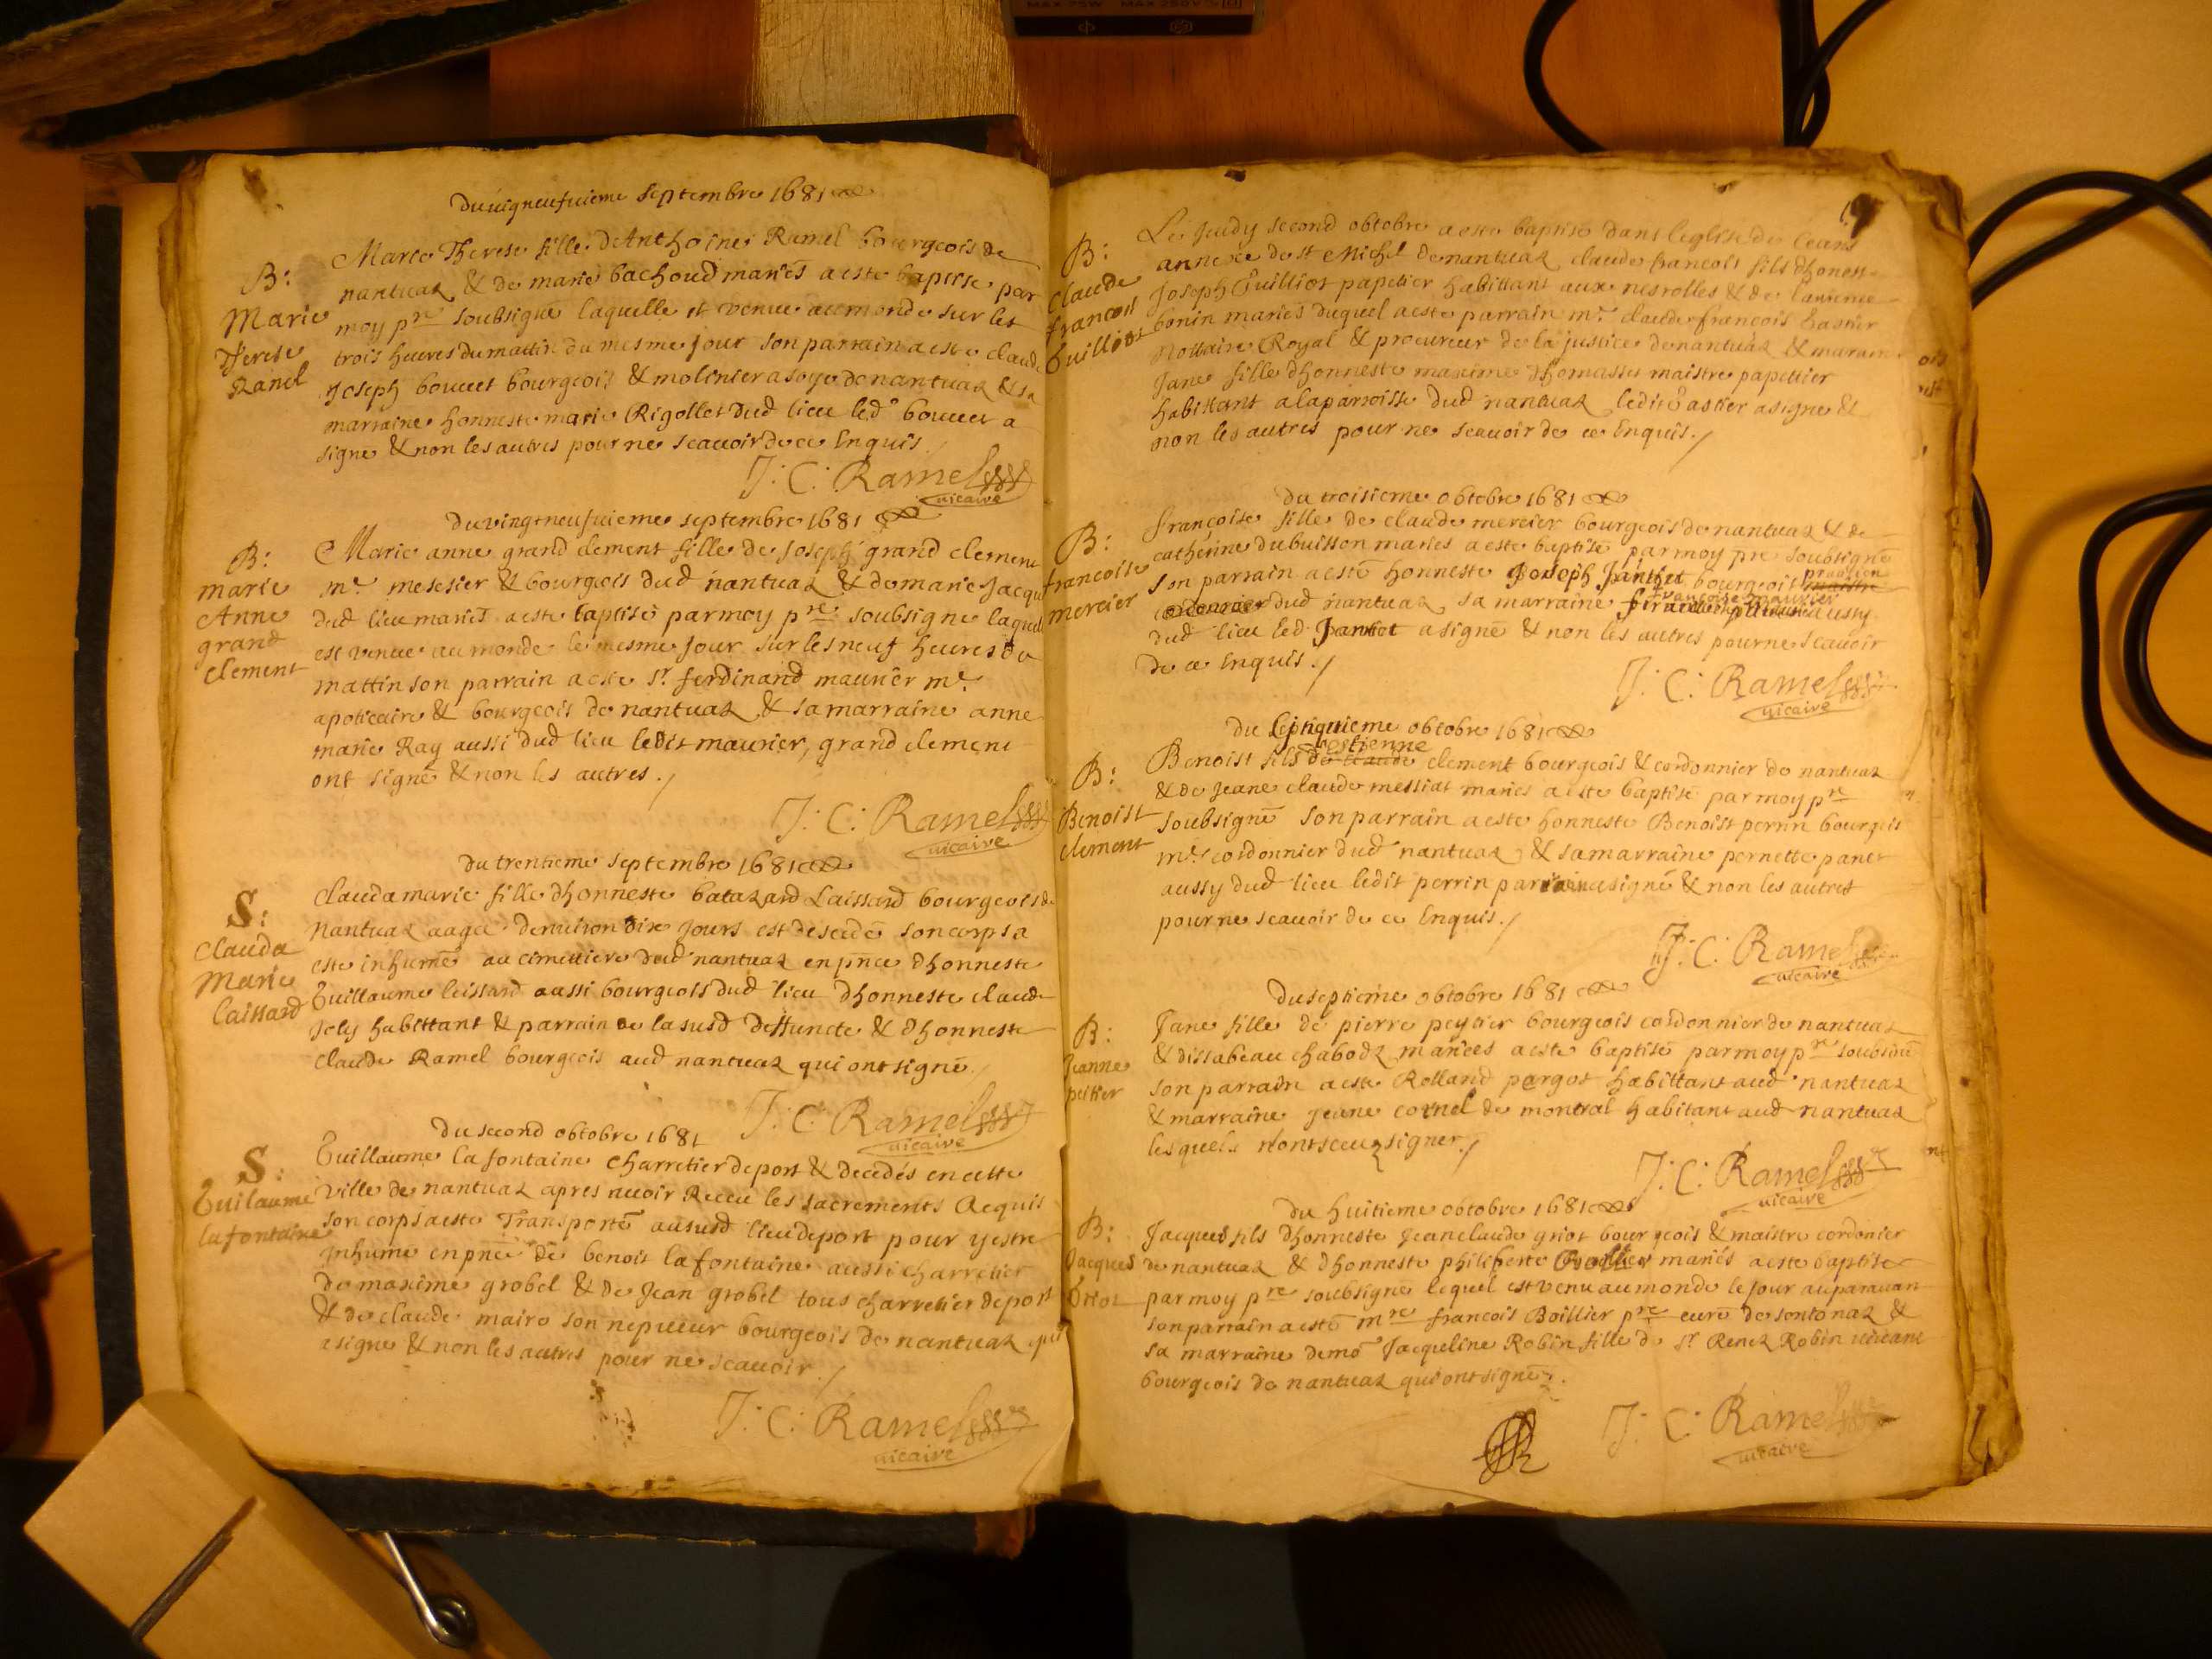 MAX 75W MAX 250V
Du vigneufuieme septembre 1681
B:
Marie
Therese
Ramel
Marie Therese fille D'Anthoine Ramel bourgeois de
nantuaz & de marie bachoud mariés a este baptise par
moy pre soubsigne laquelle est venue au monde sur les
trois heures du mattin du mesme jour son parrain a este claude
Joseph bouuet bourgeois & molinier a soye de nantuaz & sa
marraine honneste marie Rigollet dud lieu led bouuet a
signe & non les autres pour ne scauoir de ce Enquis
J: C: Ramel
uicaire
Du vingt neufuieme septembre 1681
B:
marie
Anne
grand
clement
Marie anne grand clement fille de Joseph grand clement
me mescier & bourgeois dud nantuaz & de marie Jacqu
dud lieu mariés a este baptisé par moy pre soubsigne laquell
est venue au monde le mesme jour sur les neuf heures du
mattin son parrain a este sr ferdinand maurier me
apoticaire & bourgeois de nantuaz & sa marraine anne
marie Ray aussi dud lieu ledit maurier, grand clement
ont signé & non les autres ./
J: C: Ramel
uicaire
Du trentieme septembre 1681
S:
Clauda
Marie
laissard
Claudamarie fille dhonneste batazard Laissard bourgeois de
Nantuaz aagee denuiron dix jours est desedé son corps a
este inhumé au cimettiere dud nantuaz en pnce dhonneste
Guillaume leissard aussi bourgeois dud lieu dhonneste claude
joly habittant & parrain de la susd deffuncte & dhonneste
claude Ramel bourgeois aud nantuaz qui ont signé ./
J: C: Ramel
uicaire
Du second obtobre 1681
S:
Guilaume
la fontaine
Guillaume la fontaine charretier deport & decedés en cette
ville de nantuaz apres auoir Receu les sacrements Requis
son corps a este Transporté au susd lieu deport pour y estre
inhume en pnce de benoit la fontaine aussi charretier
de maxime grobel & de Jean grobel tous charretier deport
& de claude maire son nepueur bourgeois de nantuaz qui
a signe & non les autres pour ne scauoir ./
J: C: Ramel
uicaire
B:
Claude
francois
Guilliot
Le Jeudy second obtobre a este baptisé dans leglise de ceans
annexe de st Michel de nantuaz claude francois fils dhonest
Joseph Guilliot papetier habittant aux nesrolles & de
bonin mariés duquel a este parrain me claude francois Gastier
Nottaire Royal & procureur de la justice de nantuaz & maraine
Jane fille dhonneste maxime Thomasset maistre papettier
habittant a la paroisse dud nantuaz ledit Gastier a signe &
non les autres pour ne scauoir de ce Enquis ./
Du troisieme obtobre 1681
B:
francoise
mercier
françoise fille de claude mercier bourgeois de nantuaz & de
cathérine dubuisson mariés a este baptisé par moy pre soubsigné
son parrain a esté honneste Joseph Janttet bourgeois
dud nantuaz sa marraine francoise maurier aussy
dud lieu led Janttet a signé & non les autres pour ne scauoir
de ce Enquis ./
J: C: Ramel
uicaire
Du obtobre 1681
B:
Benoist
clement
Benoist fils d'estienne clement bourgeois & cordonnier de nantuaz
& de Jeane claude messiat mariés a este baptisé par moy pre
soubsigné son parrain a este honneste Benoist perrin bourgeois
me cordonnier dud nantuaz & sa marraine pernette panet
aussy dud lieu ledit perrin parrain a signé & non les autres
pour ne scauoir de ce Enquis ./
J: C: Ramel
uicaire
Du septieme obtobre 1681
B:
Jeanne
peitier
Jane fille de pierre peytier bourgeois cordonnier de nantuaz
& dissabeau chabodz mariees a este baptisé par moy pre soubsiné
son parrain a este Rolland pergot habittant aud nantuaz
& marraine Jeane cornel de montral habitant aud nantuaz
lesquels n'ont sceuz signer ./
J: C: Ramel
uicaire
Du huitieme obtobre 1681
B:
Jacques
Griot
Jacques fils dhonneste Jeanclaude griot bourgeois & maistre cordonier
de nantuaz & dhonneste philiberte mariés a este baptise
par moy pre soubsigné lequel est venu au monde le jour auparauan
son parrain a esté mre francois Boillier pre curé de sontonaz &
sa marraine demo Jacqueline Robin fille de sr Renez Robin uiuant
bourgeois de nantuaz qui ont signé
J: C: Ramel
uicaire